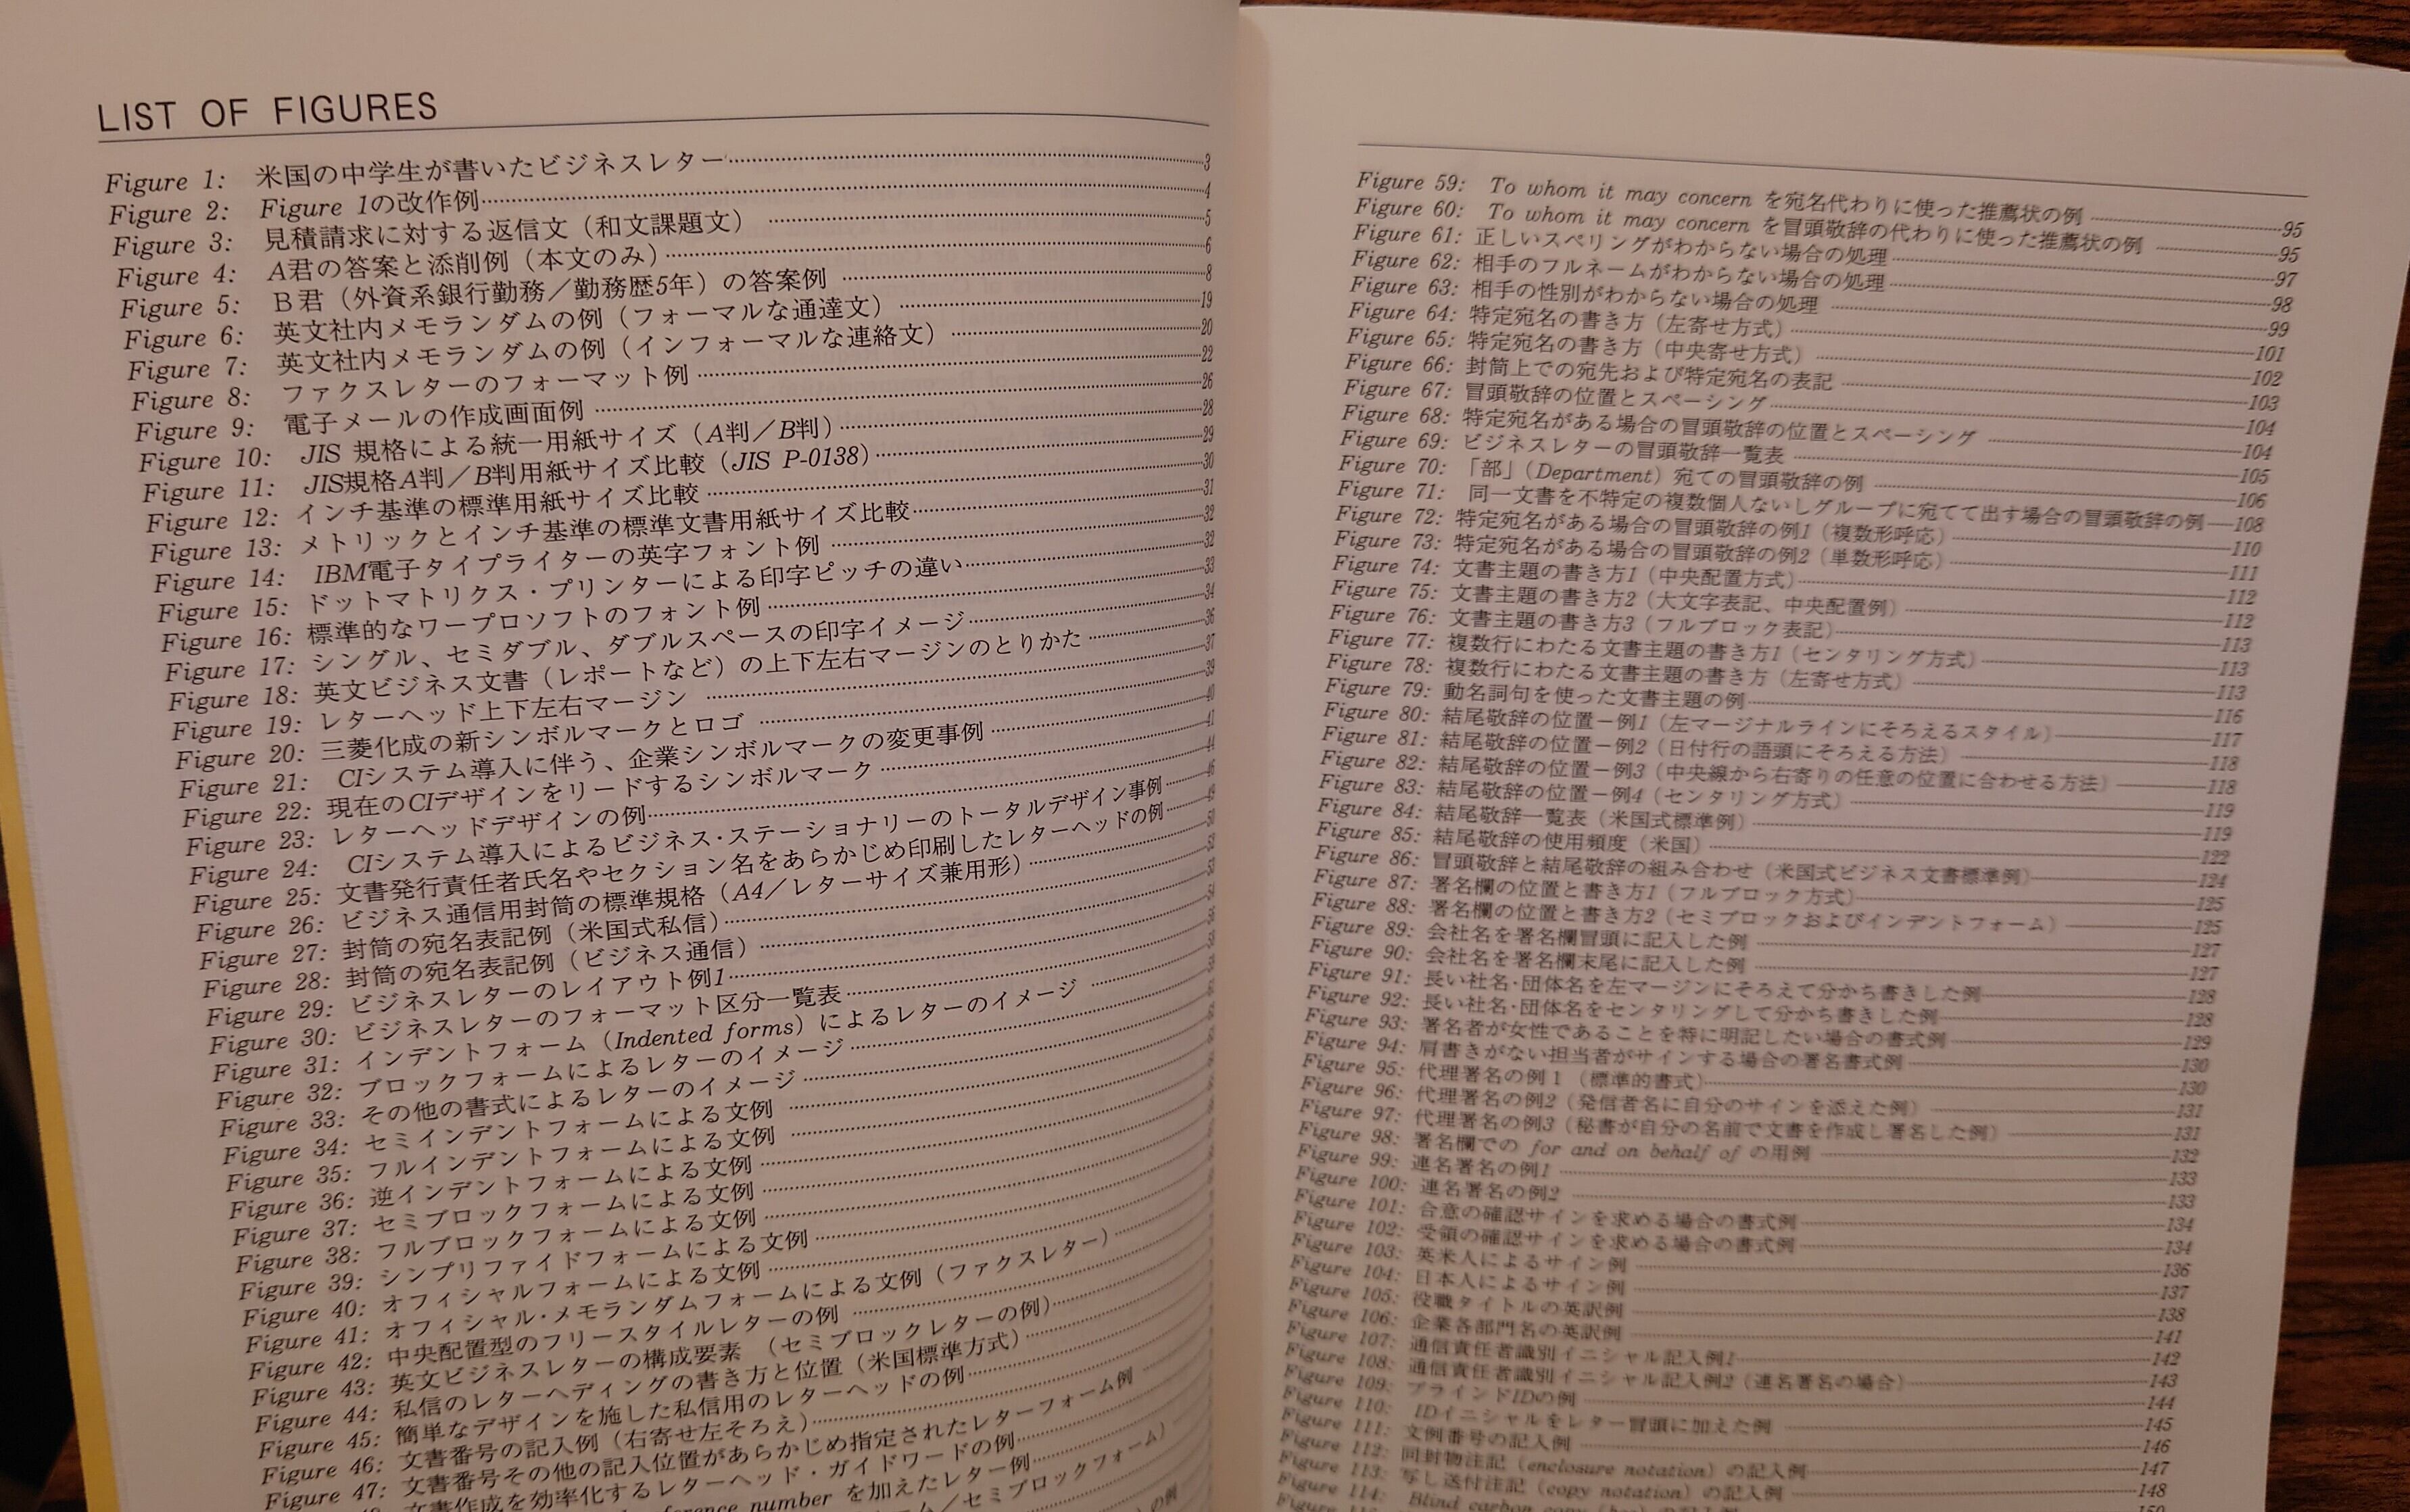 LIST OF FIGURES
Figure 1: 米国の中学生が書いたビジネスレター 3
Figure 2: Figure 1の改作例 4
Figure 3: 見積請求に対する返信文（和文課題文） 5
Figure 4: A君の答案と添削例（本文のみ） 6
Figure 5: B君（外資系銀行勤務／勤務歴5年）の答案例 8
Figure 6: 英文社内メモランダムの例（フォーマルな通達文） 19
Figure 7: 英文社内メモランダムの例（インフォーマルな連絡文） 20
Figure 8: ファクスレターのフォーマット例 22
Figure 9: 電子メールの作成画面例 26
Figure 10: JIS 規格による統一用紙サイズ（A判／B判） 28
Figure 11: JIS規格A判／B判用紙サイズ比較（JIS P-0138） 29
Figure 12: インチ基準の標準用紙サイズ比較 30
Figure 13: メトリックとインチ基準の標準文書用紙サイズ比較 31
Figure 14: IBM電子タイプライターの英字フォント例 32
Figure 15: ドットマトリクス・プリンターによる印字ピッチの違い 32
Figure 16: 標準的なワープロソフトのフォント例 33
Figure 17: シングル、セミダブル、ダブルスペースの印字イメージ 34
Figure 18: 英文ビジネス文書（レポートなど）の上下左右マージンのとりかた 36
Figure 19: レターヘッド上下左右マージン 37
Figure 20: 三菱化成の新シンボルマークとロゴ 39
Figure 21: CIシステム導入に伴う、企業シンボルマークの変更事例 40
Figure 22: 現在のCIデザインをリードするシンボルマーク 41
Figure 23: レターヘッドデザインの例 44
Figure 24: CIシステム導入によるビジネス・ステーショナリーのトータルデザイン事例 46
Figure 25: 文書発行責任者氏名やセクション名をあらかじめ印刷したレターヘッドの例
Figure 26: ビジネス通信用封筒の標準規格（A4／レターサイズ兼用形）
Figure 27: 封筒の宛名表記例（米国式私信）
Figure 28: 封筒の宛名表記例（ビジネス通信）
Figure 29: ビジネスレターのレイアウト例1
Figure 30: ビジネスレターのフォーマット区分一覧表
Figure 31: インデントフォーム（Indented forms）によるレターのイメージ
Figure 32: ブロックフォームによるレターのイメージ
Figure 33: その他の書式によるレターのイメージ
Figure 34: セミインデントフォームによる文例
Figure 35: フルインデントフォームによる文例
Figure 36: 逆インデントフォームによる文例
Figure 37: セミブロックフォームによる文例
Figure 38: フルブロックフォームによる文例
Figure 39: シンプリファイドフォームによる文例
Figure 40: オフィシャルフォームによる文例
Figure 41: オフィシャル・メモランダムフォームによる文例（ファクスレター）
Figure 42: 中央配置型のフリースタイルレターの例
Figure 43: 英文ビジネスレターの構成要素 （セミブロックレターの例）
Figure 44: 私信のレターヘディングの書き方と位置（米国標準方式）
Figure 45: 簡単なデザインを施した私信用のレターヘッドの例
Figure 46: 文書番号の記入例（右寄せ左そろえ）
Figure 47: 文書番号その他の記入位置があらかじめ指定されたレターフォーム例
文書作成を効率化するレターヘッド・ガイドワードの例
reference number を加えたレター例
Figure 59: To whom it may concern を宛名代わりに使った推薦状の例 95
Figure 60: To whom it may concern を冒頭敬辞の代わりに使った推薦状の例 95
Figure 61: 正しいスペリングがわからない場合の処理 97
Figure 62: 相手のフルネームがわからない場合の処理 98
Figure 63: 相手の性別がわからない場合の処理 99
Figure 64: 特定宛名の書き方（左寄せ方式） 101
Figure 65: 特定宛名の書き方（中央寄せ方式） 102
Figure 66: 封筒上での宛先および特定宛名の表記 103
Figure 67: 冒頭敬辞の位置とスペーシング 104
Figure 68: 特定宛名がある場合の冒頭敬辞の位置とスペーシング 104
Figure 69: ビジネスレターの冒頭敬辞一覧表 105
Figure 70: 「部」（Department）宛ての冒頭敬辞の例 106
Figure 71: 同一文書を不特定の複数個人ないしグループに宛てて出す場合の冒頭敬辞の例 108
Figure 72: 特定宛名がある場合の冒頭敬辞の例1（複数形呼応） 110
Figure 73: 特定宛名がある場合の冒頭敬辞の例2（単数形呼応） 111
Figure 74: 文書主題の書き方1（中央配置方式） 112
Figure 75: 文書主題の書き方2（大文字表記、中央配置例） 112
Figure 76: 文書主題の書き方3（フルブロック表記） 113
Figure 77: 複数行にわたる文書主題の書き方1（センタリング方式） 113
Figure 78: 複数行にわたる文書主題の書き方（左寄せ方式） 113
Figure 79: 動名詞句を使った文書主題の例 116
Figure 80: 結尾敬辞の位置－例1（左マージナルラインにそろえるスタイル） 117
Figure 81: 結尾敬辞の位置－例2（日付行の語頭にそろえる方法） 118
Figure 82: 結尾敬辞の位置－例3（中央線から右寄りの任意の位置に合わせる方法） 118
Figure 83: 結尾敬辞の位置－例4（センタリング方式） 119
Figure 84: 結尾敬辞一覧表（米国式標準例） 119
Figure 85: 結尾敬辞の使用頻度（米国） 122
Figure 86: 冒頭敬辞と結尾敬辞の組み合わせ（米国式ビジネス文書標準例） 124
Figure 87: 署名欄の位置と書き方1（フルブロック方式） 125
Figure 88: 署名欄の位置と書き方2（セミブロックおよびインデントフォーム） 125
Figure 89: 会社名を署名欄冒頭に記入した例 127
Figure 90: 会社名を署名欄末尾に記入した例 127
Figure 91: 長い社名・団体名を左マージンにそろえて分かち書きした例 128
Figure 92: 長い社名・団体名をセンタリングして分かち書きした例 128
Figure 93: 署名者が女性であることを特に明記したい場合の書式例 129
Figure 94: 肩書きがない担当者がサインする場合の署名書式例 130
Figure 95: 代理署名の例1 （標準的書式） 130
Figure 96: 代理署名の例2（発信者名に自分のサインを添えた例） 131
Figure 97: 代理署名の例3（秘書が自分の名前で文書を作成し署名した例） 131
Figure 98: 署名欄での for and on behalf of の用例 132
Figure 99: 連名署名の例1 133
Figure 100: 連名署名の例2 133
Figure 101: 合意の確認サインを求める場合の書式例 134
Figure 102: 受領の確認サインを求める場合の書式例 134
Figure 103: 英米人によるサイン例 136
Figure 104: 日本人によるサイン例 137
Figure 105: 役職タイトルの英訳例 138
Figure 106: 企業各部門名の英訳例 141
Figure 107: 通信責任者識別イニシャル記入例1 142
Figure 108: 通信責任者識別イニシャル記入例2（連名署名の場合） 143
Figure 109: ブラインドIDの例 144
Figure 110: IDイニシャルをレター冒頭に加えた例 145
Figure 111: 文例番号の記入例 146
Figure 112: 同封物注記（enclosure notation）の記入例 147
Figure 113: 写し送付注記（copy notation）の記入例 148
Figure 114: Blind carbon copy（bcc）の記入例 150